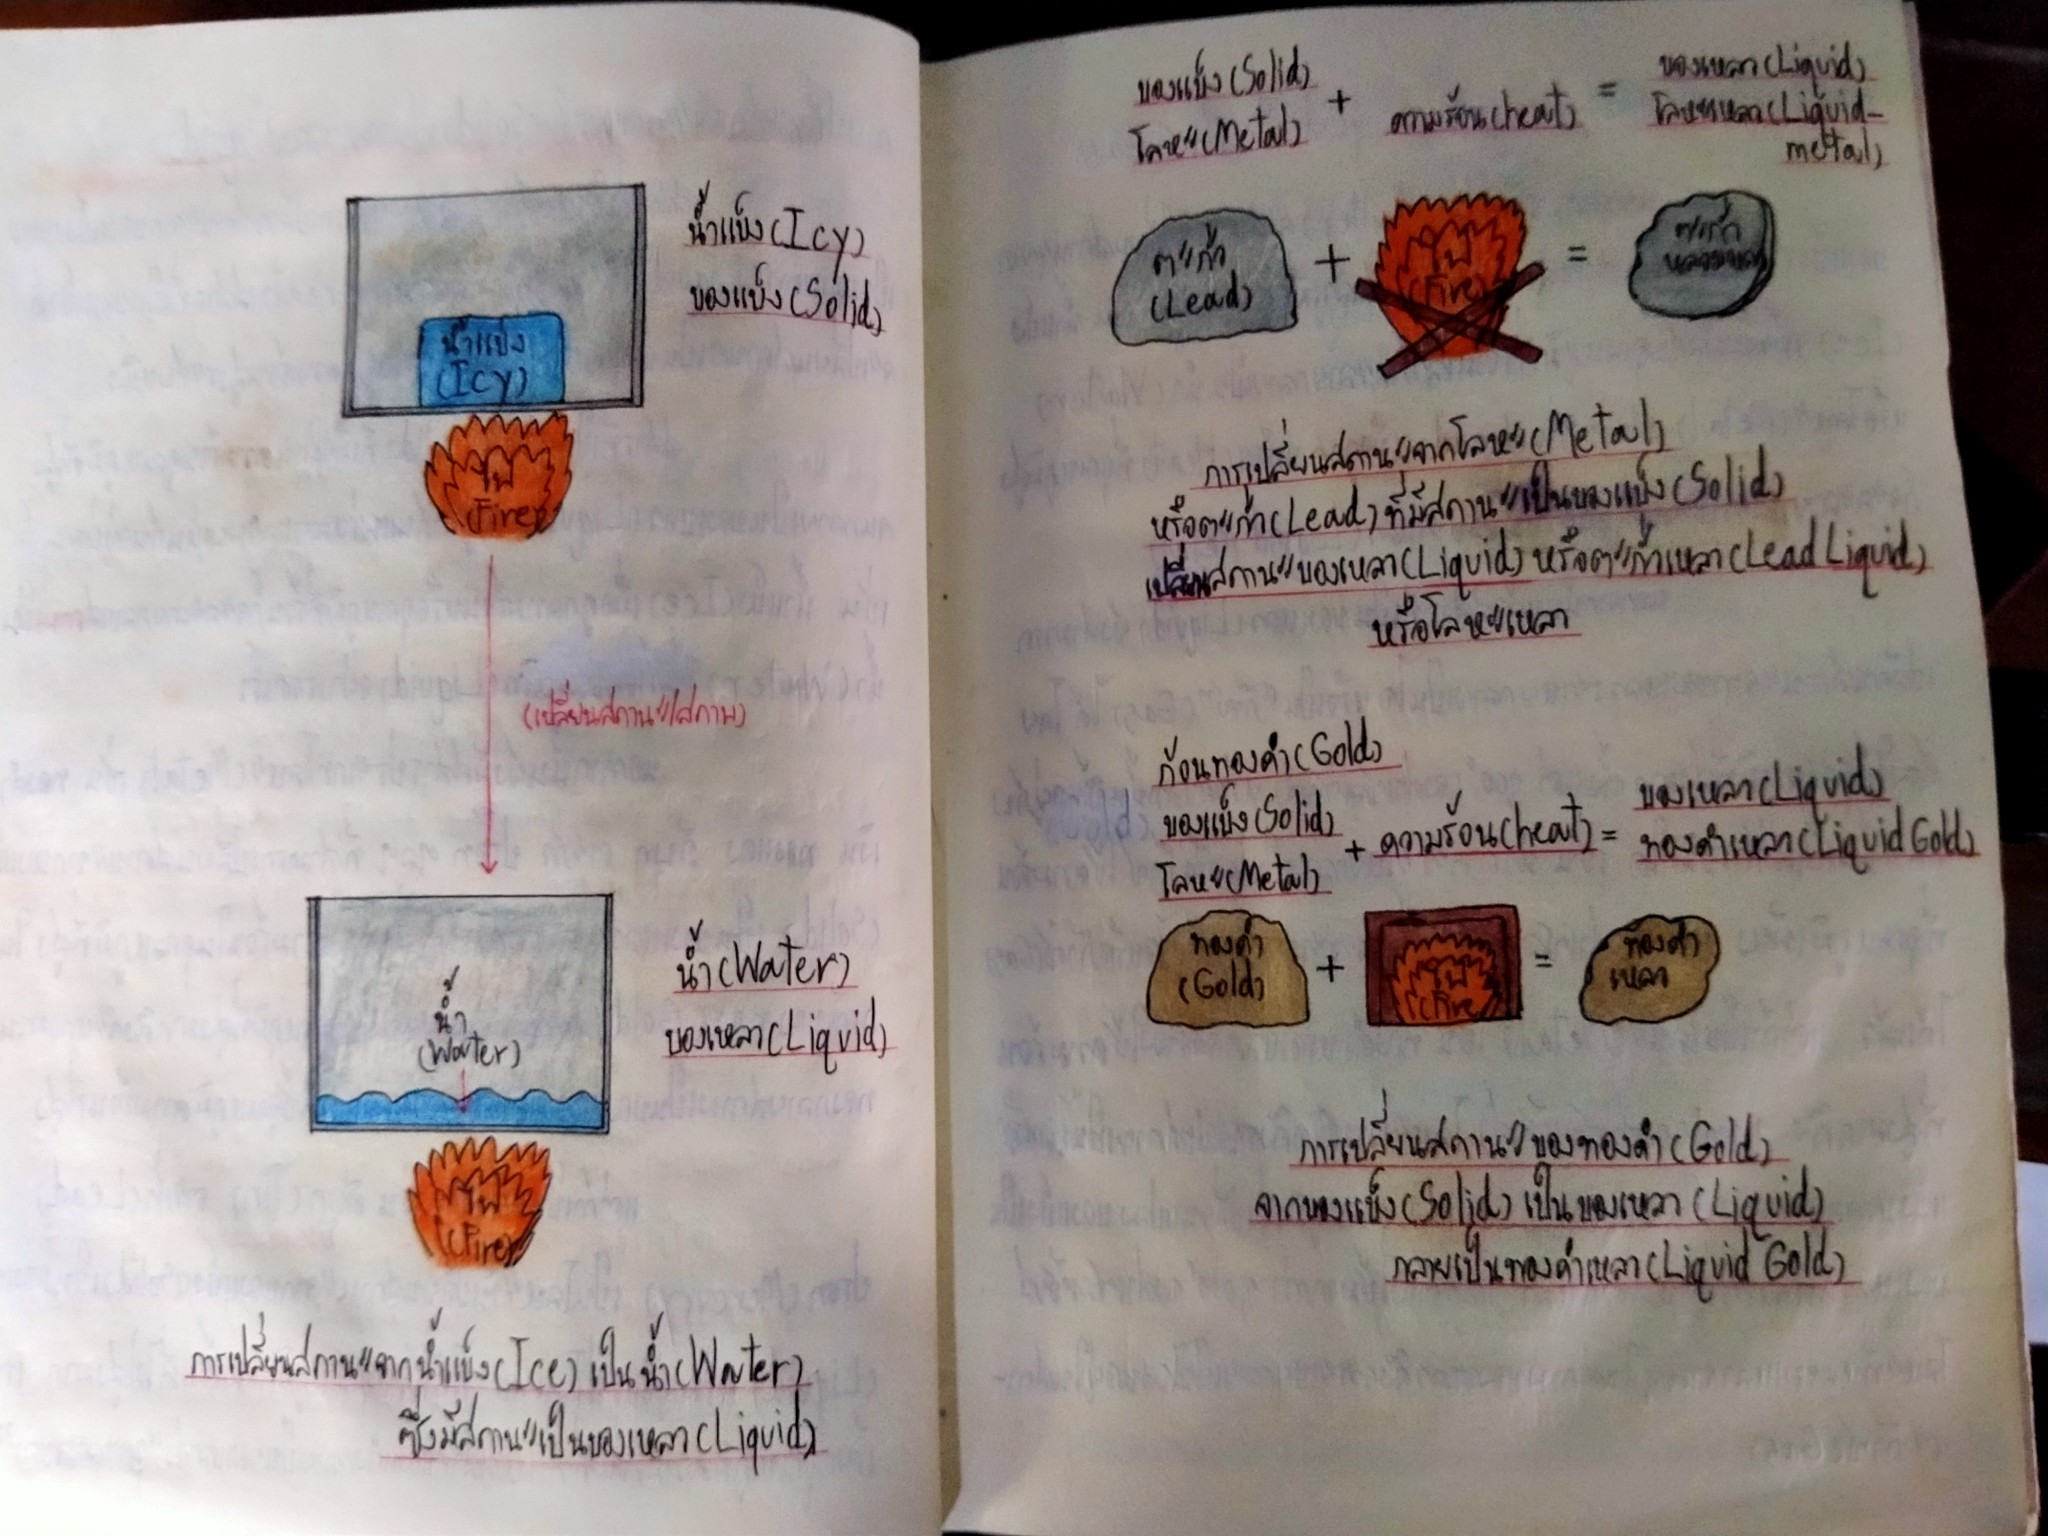 น้ำแข็ง(Icy)
ของแข็ง(Solid)
น้ำแข็ง
(Icy)
ไฟ
(Fire)
(เปลี่ยนสถานะ/สภาพ)
น้ำ
(Water)
น้ำ(Water)
ของเหลว(Liquid)
ไฟ
(Fire)
การเปลี่ยนสถานะจากน้ำแข็ง(Ice) เป็นน้ำ(Water)
ซึ่งมีสถานะเป็นของเหลว(Liquid)
ของแข็ง(Solid)
โลหะ(Metal)
+
ความร้อน(heat)
=
ของเหลว(Liquid)
โลหะเหลว(Liquid-
metal)
ตะกั่ว
(Lead)
+
ไฟ
(Fire)
=
ตะกั่ว
การเปลี่ยนสถานะจากโลหะ(Metal)
หรือตะกั่ว(Lead) ที่มีสถานะเป็นของแข็ง(Solid)
เปลี่ยนสถานะของเหลว(Liquid) หรือตะกั่วเหลว(Lead Liquid)
หรือโลหะเหลว
ก้อนทองคำ(Gold)
ของแข็ง(Solid)
โลหะ(Metal)
+ ความร้อน(heat) =
ของเหลว(Liquid)
ทองคำเหลว(Liquid Gold)
ทองคำ
(Gold)
+
ไฟ
(Fire)
=
ทองคำ
เหลว
การเปลี่ยนสถานะของทองคำ(Gold)
จากของแข็ง(Solid) เป็นของเหลว (Liquid)
กลายเป็นทองคำเหลว(Liquid Gold)